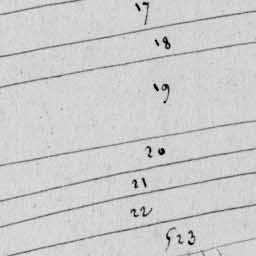 17
18
19
20
21
22
523